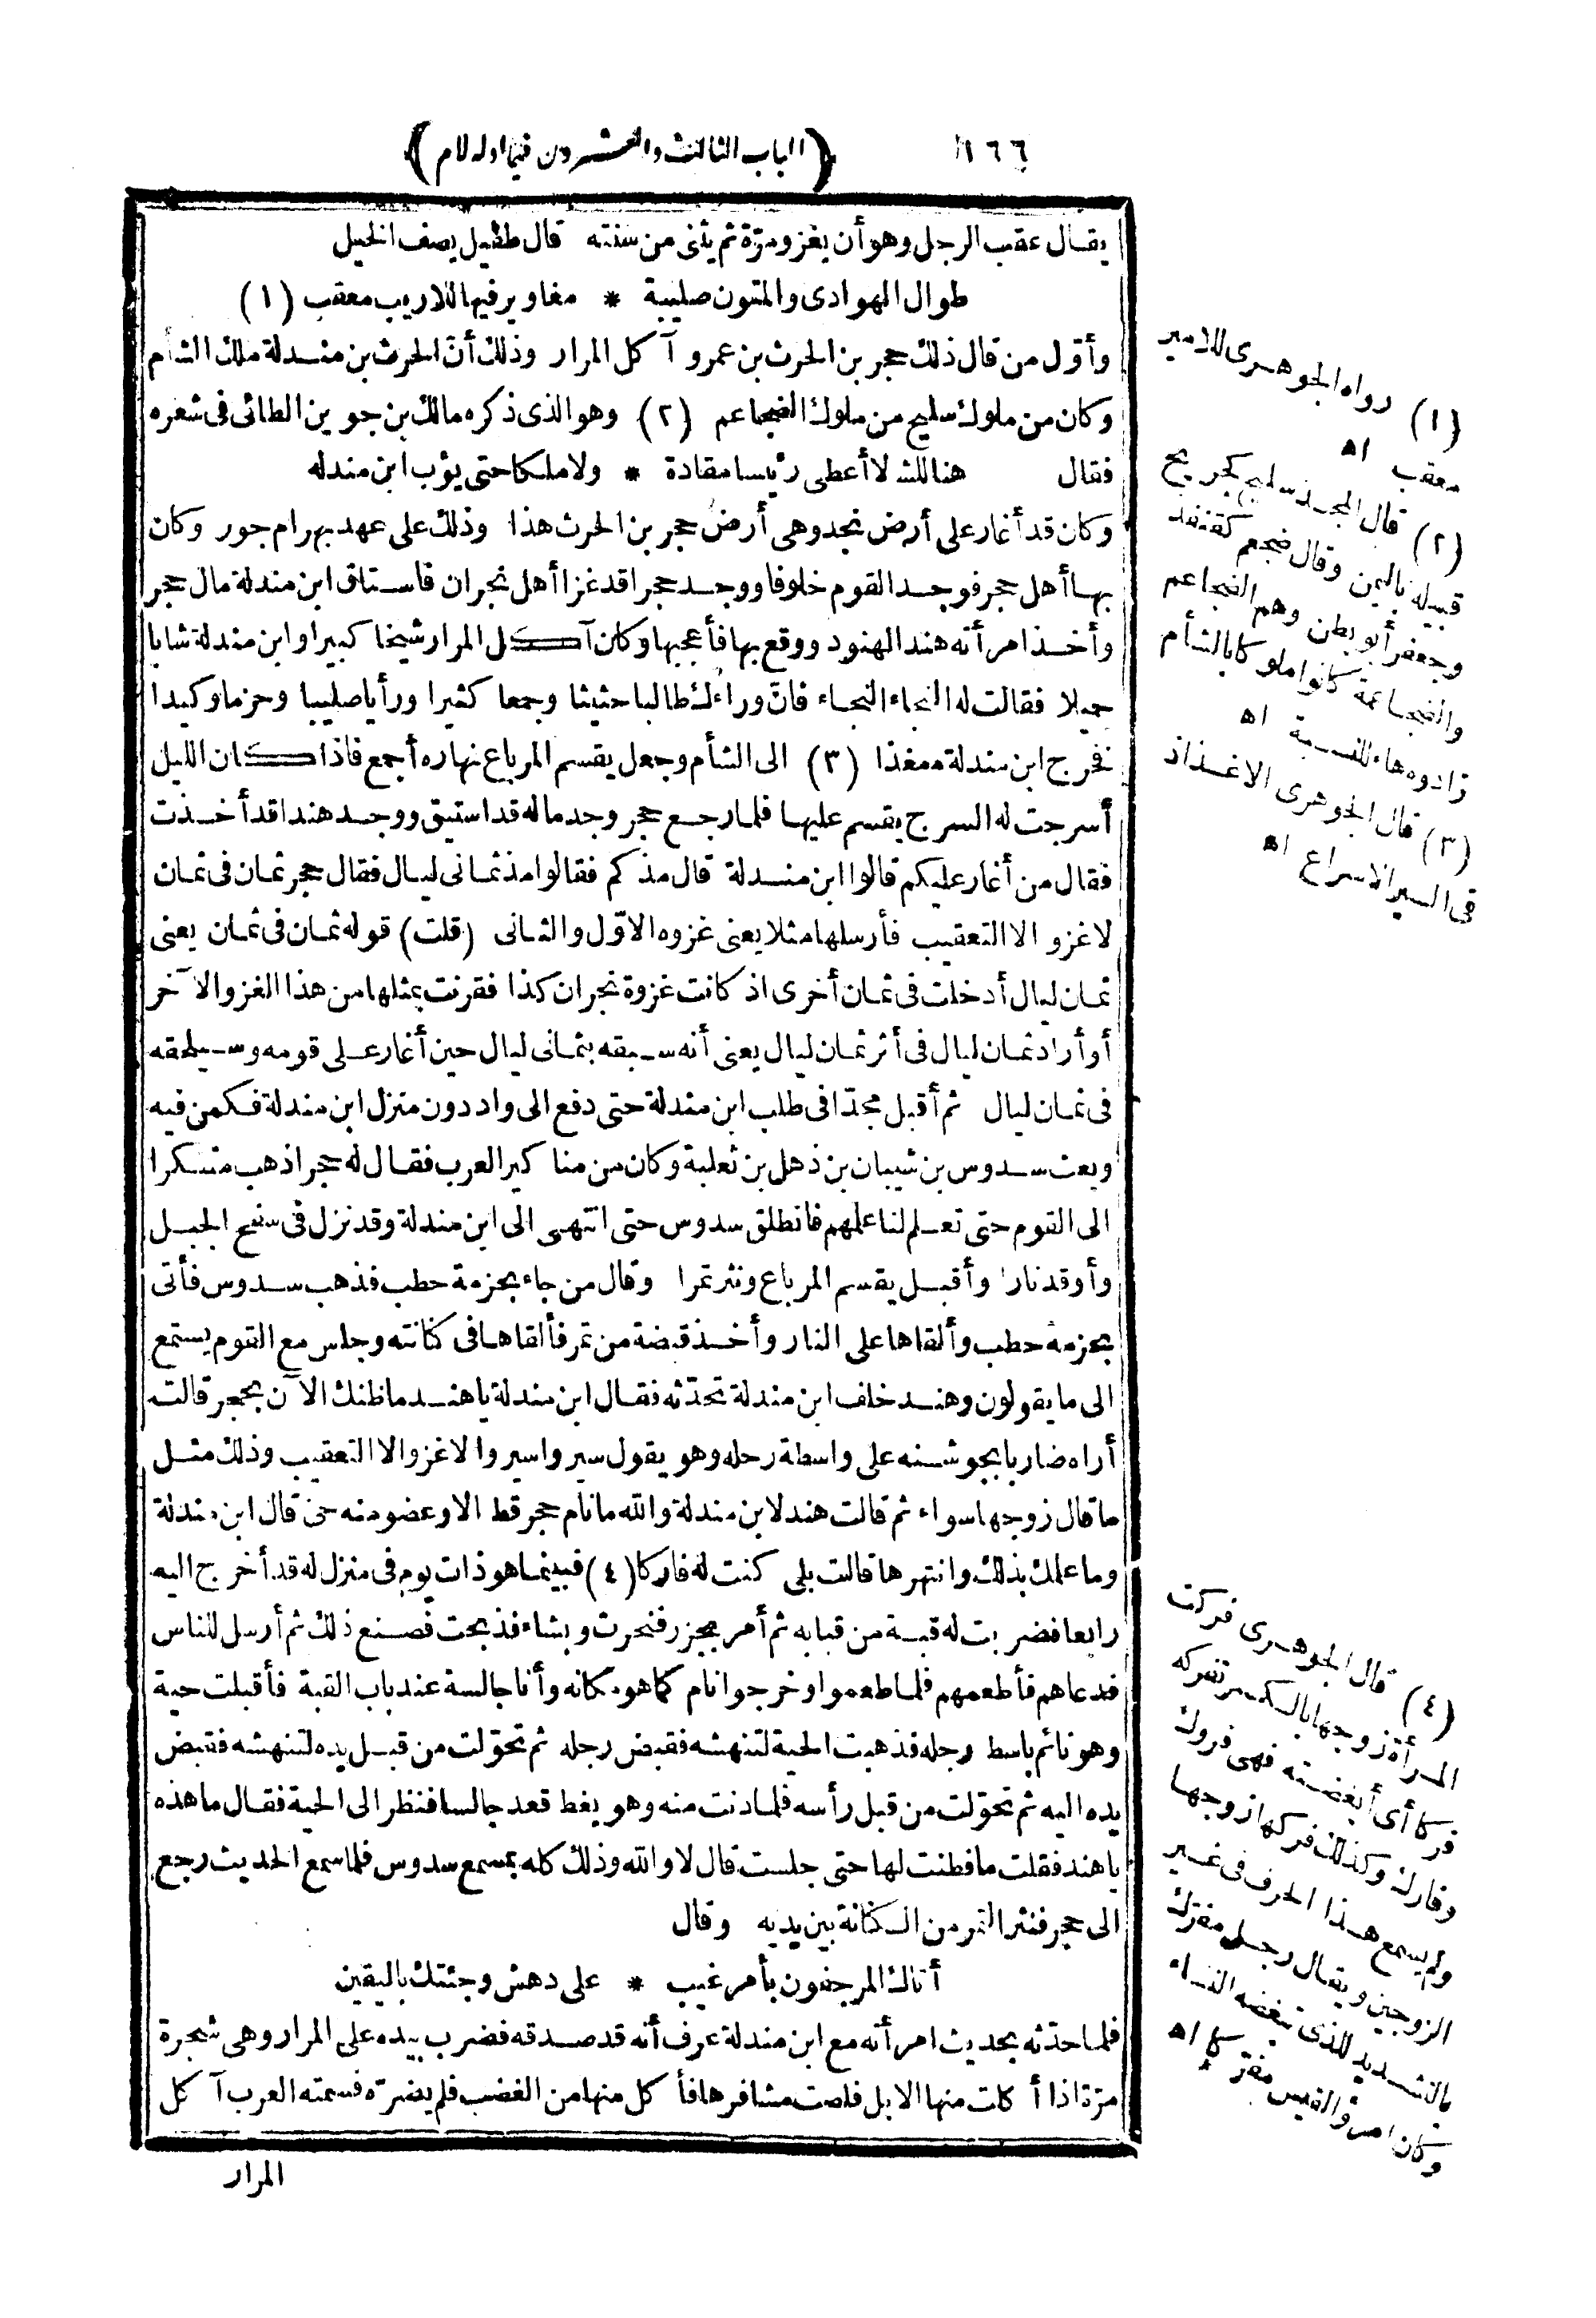 ١٦٦
(الباب الثالث والعشرون فيما اوله لام)
يقال عقب الرجل وهو أن يغزو مرّة ثم يثنى من سنته قال طفيل يصف الخيل
طوال الهوادى والمتون صليبة * مغاوير فيها للاريب معقب (١)
وأوّل من قال ذلك حجر بن الحرث بن عمرو آ كل المرار وذلك أنّ الحرث بن مندلة ملك الشأم
وكان من ملوك سليح من ملوك الضجاعم (٢) وهو الذى ذكره مالك بن جوين الطائى فى شعره
فقال هنالك لا أعطى رئيسا مقادة * ولا ملكا حتى يؤب ابن مندله
وكان قد أغار على أرض نجد وهى أرض حجر بن الحرث هذا وذلك على عهد بهرام جور وكان
بها أهل حجر فوجد القوم خلوفا ووجد حجرا قد غزا أهل نجران فاستاق ابن مندلة مال حجر
وأخذ امرأته هند الهنود ووقع بها فأعجبها وكان آكل المرار شيخا كبيرا وابن مندلة شابا
جميلا فقالت له النجاء النجاء فانّ وراءك طالبا حثيثا وجمعا كثيرا ورأيا صليبا وحزما وكيدا
نفخرج ابن مندلة مغذا (٣) الى الشأم وجعل يقسم المرباع نهاره أجمع فاذا كان الليل
أسرجت له السرج يقسم عليها فلما رجع حجر وجد ماله قد استيق ووجد هندا قد أخذت
فقال من أغار عليكم قالوا ابن مندلة قال مذ كم فقالوا مذ ثمانى ليال فقال حجر ثمان فى ثمان
لا غزو الا التعقيب فأرسلها مثلا يعنى غزوه الاوّل والثانى (قلت) قوله ثمان فى ثمان يعنى
ثمان ليال أدخلت فى ثمان أخرى اذ كانت غزوة نجران كذا فقرنت بمثلها من هذا الغزو الآخر
أو أراد ثمان ليال فى أثر ثمان ليال يعنى أنه سبقه بثمانى ليال حين أغار على قومه وسيلحقه
فى ثمان ليال ثم أقبل مجدّا فى طلب ابن مندلة حتى دفع الى واد دون منزل ابن مندلة فكمن فيه
وبعث سدوس بن شيبان بن ذهل بن ثعلبة وكان من منا كير العرب فقال له حجر اذهب متنكرا
الى القوم حتى تعلم لنا علمهم فانطلق سدوس حتى انتهى الى ابن مندلة وقد نزل فى سفح الجبل
وأوقد نارا وأقبل يقسم المرباع ونثر تمرا وقال من جاء بحزمة حطب فذهب سدوس فأتى
بحزمة حطب وألقاها على النار وأخذ قبضة من تمر فألقاها فى كنانته وجلس مع القوم يستمع
الى ما يقولون وهند خلف ابن مندلة تحدّثه فقال ابن مندلة يا هند ما ظنك الآن بحجر قالت
أراه ضاربا بجوشنه على واسطة رحله وهو يقول سيروا سيروا لا غزو الا التعقيب وذلك مثل
ما قال زوجها سواء ثم قالت هند لابن مندلة والله ما نام حجر قط الا وعضو منه حى قال ابن مندلة
وما علمك بذلك وانتهرها قالت بلى كنت له فاركا (٤) فبينما هو ذات يوم فى منزل له قد أخرج اليه
رابعا فضربت له قبة من قبابه ثم أمر بجزر فنحرت وبشاء فذبحت فصنع ذلك ثم أرسل للناس
فدعاهم فأطعمهم فلما طعموا وخرجوا نام كما هو مكانه وأنا جالسة عند باب القبة فأقبلت حية
وهو نائم باسط رجله فذهبت الحية لتنهشه فقبض رجله ثم تحوّلت من قبل يده لتنهشه فقبض
يده اليه ثم تحوّلت من قبل رأسه فلما دنت منه وهو يغط قعد جالسا فنظر الى الحية فقال ما هذه
يا هند فقلت ما فطنت لها حتى جلست قال لا والله وذلك كله بمسمع سدوس فلما سمع الحديث رجع
الى حجر فنثر التمر من الكنانة بين يديه وقال
أتاك المرجفون بأمر غيب * على دهش وجئتك باليقين
فلما حدّثه بحديث امرأته مع ابن مندلة عرف أنه قد صدقه فضرب بيده على المرار وهى شجرة
مرّة اذا أ كلت منها الابل قلصت مشافرها فأ كل منها من الغضب فلم يضرّه فسمته العرب آ كل
المرار
(١) رواه الجوهرى للامير
معقب اه
(٢) قال المجد سليح كجريح
قبيلة باليمن وقال ضجعم كقنفد
وجعفر أبو بطن وهم الضجاعم
والضجاعمة كانوا ملوكا بالشأم
زادوه هاء للنسبة اه
(٣) قال الجوهرى الاغذاذ
فى السير الاسراع اه
(٤) قال الجوهرى فركت
المرأة زوجها بالكسر تفركه
فركا أى أبغضته فهى فروك
وفارك وكذلك فركها زوجها
ولم يسمع هذا الحرف فى غير
الزوجين ويقال رجل مفرّك
بالتشديد للذى تبغضه النساء
وكان امرؤ القيس مفرّكا اه